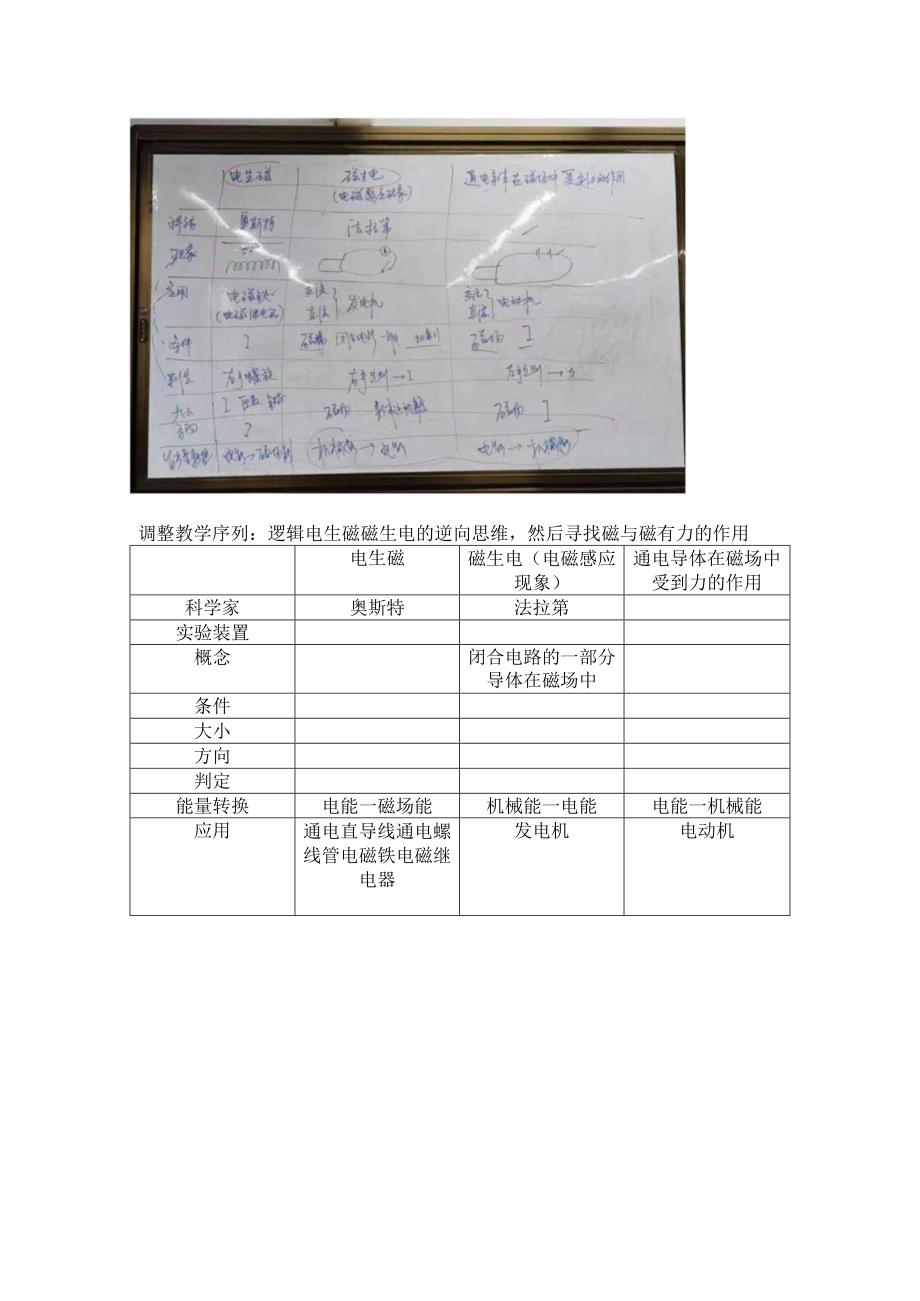 电生磁 磁生电 通电导体在磁场中受到力的作用
(电磁感应现象)
科学家 奥斯特 法拉第
现象
应用 电磁铁 交流 直流 发电机 交流 直流 电动机
(电磁继电器)
条件 I 磁场 闭合电路一部分 切割 磁场 I
判定 右手螺旋 右手定则→I 左手定则→力
大小 I 匝数 铁芯 磁场 磁场 I
方向 I
电能→磁场能 机械能→电能 电能→机械能
调整教学序列：逻辑电生磁磁生电的逆向思维，然后寻找磁与磁有力的作用
电生磁 磁生电（电磁感应 通电导体在磁场中
现象） 受到力的作用
科学家 奥斯特 法拉第
实验装置
概念 闭合电路的一部分
导体在磁场中
条件
大小
方向
判定
能量转换 电能一磁场能 机械能一电能 电能一机械能
应用 通电直导线通电螺 发电机 电动机
线管电磁铁电磁继
电器